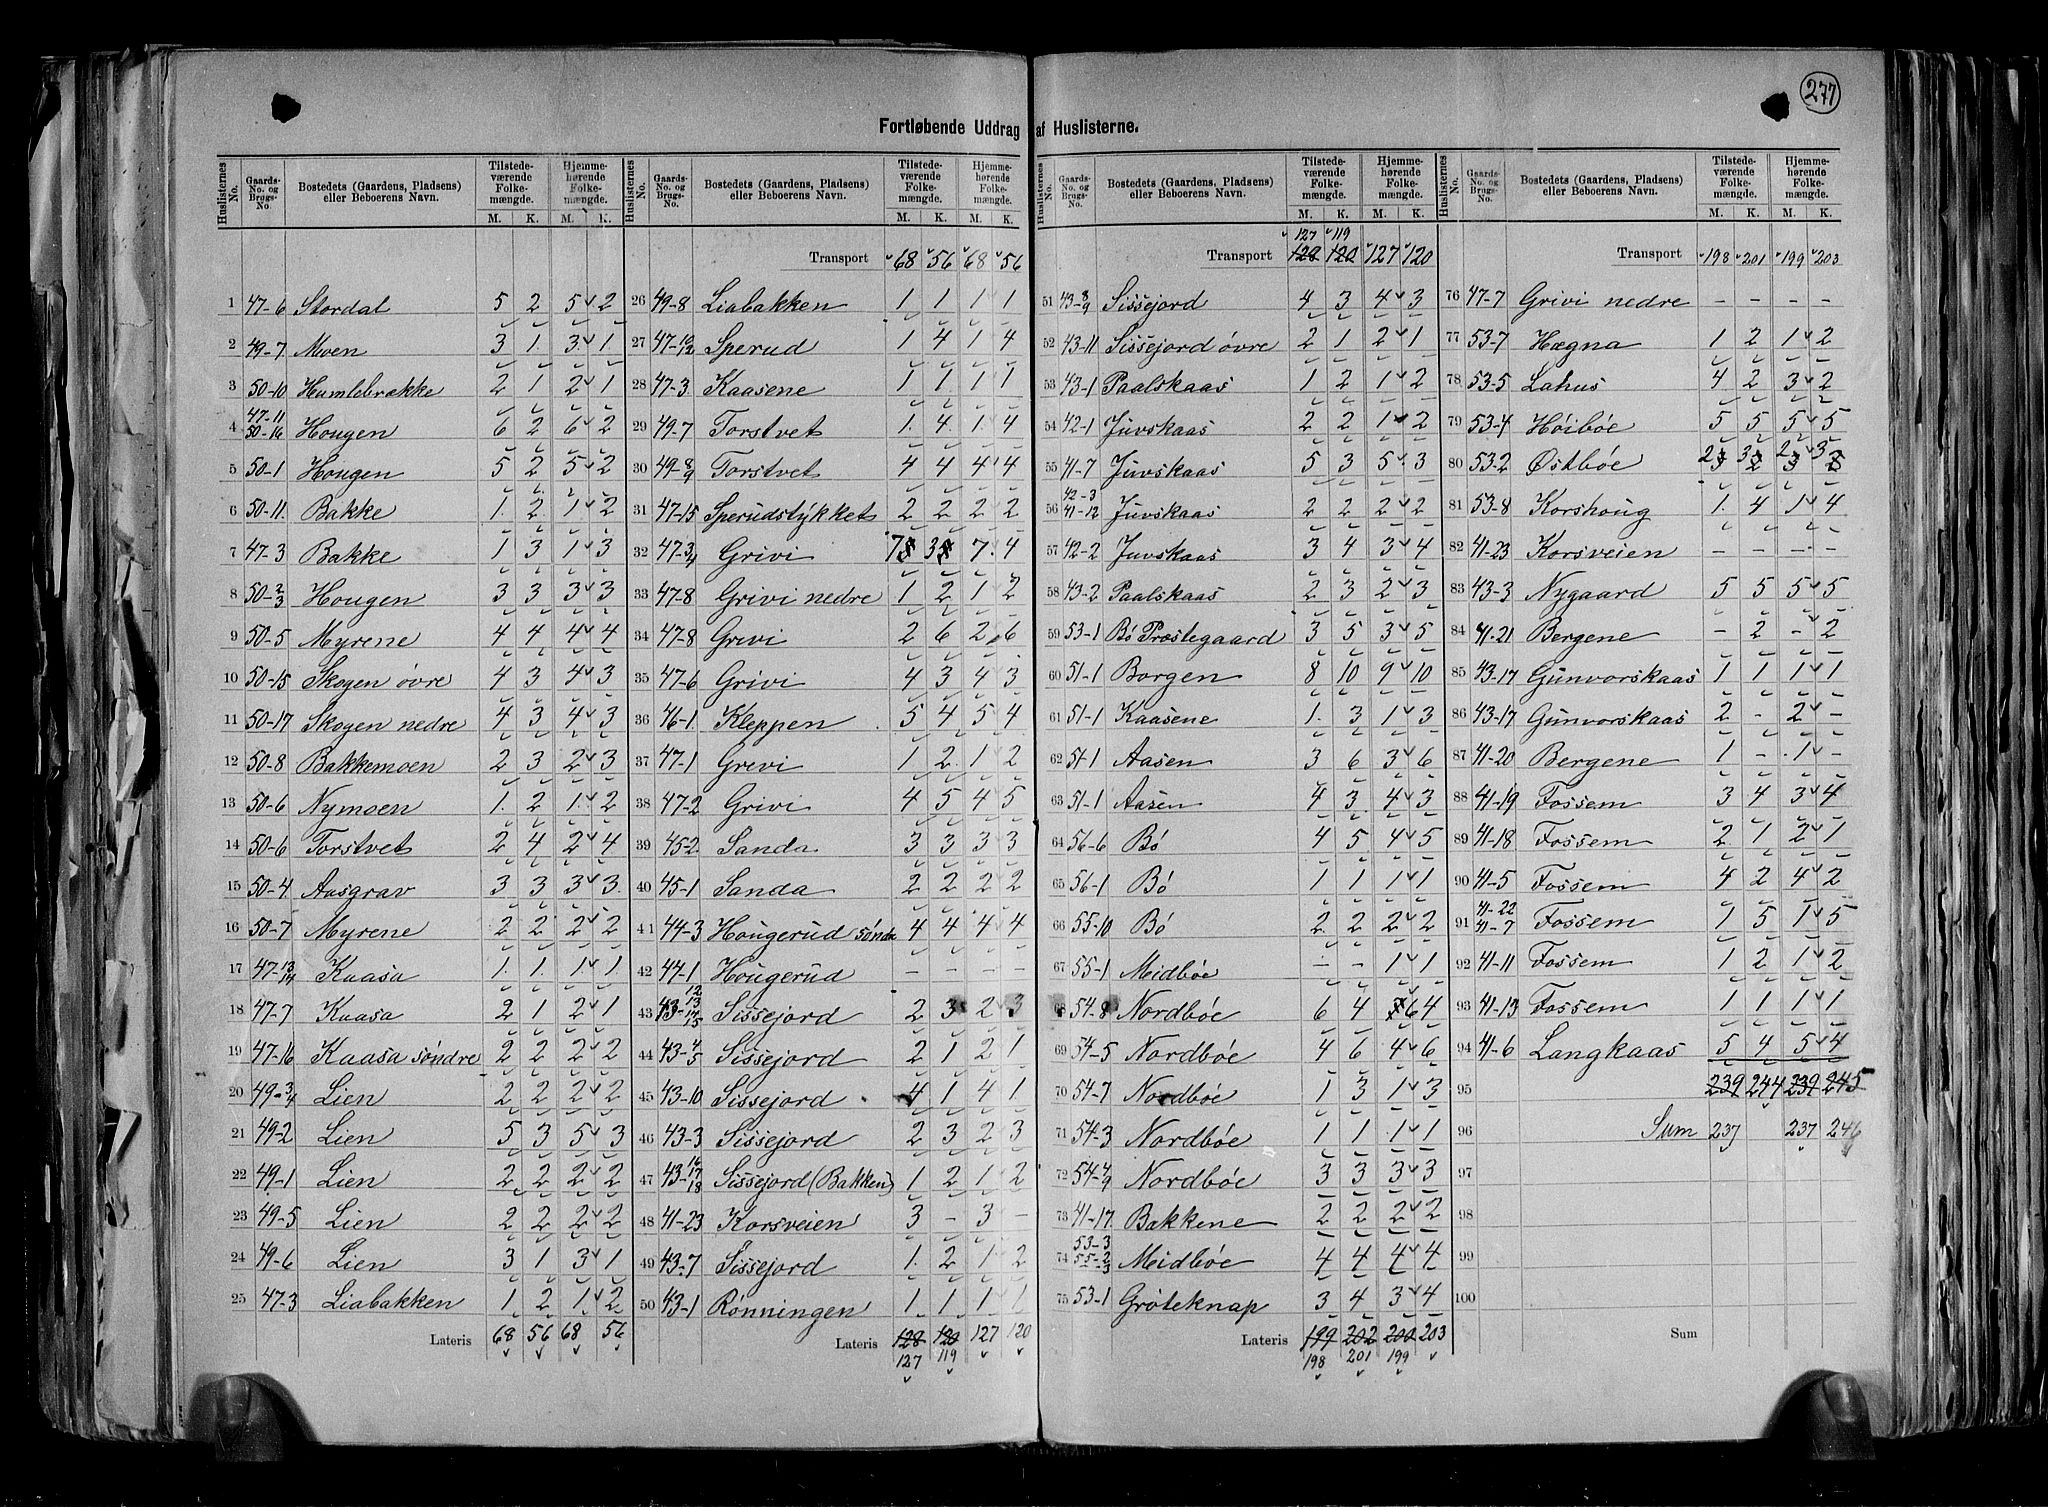 277
Fortløbende Uddrag af Huslisterne.
Huslisternes No. Gaards-No. og Brugs-No. Bostedets (Gaardens, Pladsens) eller Beboerens Navn. Tilstedeværende Folkemængde. M. K. Hjemmehørende Folkemængde. M. K.
1 47-6 Stordal 5 2 5 2
2 49-7 Moen 3 1 3 1
3 50-10 Humlebrække 2 1 2 1
4 47-11 50-16 Hougen 6 2 6 2
5 50-1 Hougen 5 2 5 2
6 50-11 Bakke 1 2 1 2
7 47-3 Bakke 1 3 1 3
8 50-2/3 Hougen 3 3 3 3
9 50-5 Myrene 4 4 4 4
10 50-15 Skogen øvre 4 3 4 3
11 50-17 Skogen nedre 4 3 4 3
12 50-8 Bakkemoen 2 3 2 3
13 50-6 Nymoen 1 2 1 2
14 50-6 Torstvet 2 4 2 4
15 50-4 Aasgrav 3 3 3 3
16 50-7 Myrene 2 2 2 2
17 47-13/14 Kaasa 1 1 1 1
18 47-7 Kaasa 2 1 2 1
19 47-16 Kaasa søndre 2 2 2 2
20 49-3/4 Lien 2 2 2 2
21 49-2 Lien 5 3 5 3
22 49-1 Lien 2 2 2 2
23 49-5 Lien 2 2 2 2
24 49-6 Lien 3 1 3 1
25 47-3 Liabakken 1 2 1 2
Lateris 68 56 68 56
Huslisternes No. Gaards-No. og Brugs-No. Bostedets (Gaardens, Pladsens) eller Beboerens Navn. Tilstedeværende Folkemængde. M. K. Hjemmehørende Folkemængde. M. K.
Transport 68 56 68 56
26 49-8 Liabakken 1 1 1 1
27 47-10/12 Sperud 1 4 1 4
28 47-3 Kaasene 1 1 1 1
29 49-7 Torstvet 1 4 1 4
30 49-8/9 Torstvet 4 4 4 4
31 47-15 Sperudstykket 2 2 2 2
32 47-3/4 Grivi 7 3 7 4
33 47-8 Grivi nedre 1 2 1 2
34 47-8 Grivi 2 6 2 6
35 47-6 Grivi 4 3 4 3
36 46-1 Kleppen 5 4 5 4
37 47-1 Grevi 1 2 1 2
38 47-2 Grivi 4 5 4 5
39 45-2 Sanda 3 3 3 3
40 45-1 Sanda 2 2 2 2
41 44-3 Hougerud søndre 4 4 4 4
42 44-1 Hougerud - - - -
43 43-12 13 14 15 Sissejord 2 3 2 3
44 43-4/5 Sissejord 2 1 2 1
45 43-10 Sissejord 4 1 4 1
46 43-3 Sissejord 2 3 2 3
47 43-16 17 18 Sissejord (Bakken) 1 2 1 2
48 41-23 Korsveien 3 - 3 -
49 43-7 Sissejord 1 2 1 2
50 43-1 Rønningen 1 1 1 1
Lateris 128 120 127 120
127 119
Huslisternes No. Gaards-No. og Brugs-No. Bostedets (Gaardens, Pladsens) eller Beboerens Navn. Tilstedeværende Folkemængde. M. K. Hjemmehørende Folkemængde. M. K.
127 119
Transport 128 120 127 120
51 43-8/9 Sissejord 4 3 4 3
52 43-11 Sissejord øvre 2 1 2 1
53 43-1 Paalskaas 1 2 1 2
54 42-1 Juvskaas 2 2 1 2
55 41-7 Juvskaas 5 3 5 3
56 42-3 41-12 Juvskaas 2 2 2 2
57 42-2 Juvskaas 3 4 3 4
58 43-2 Paalskaas 2 3 2 3
59 53-1 Bø Præstegaard 3 5 3 5
60 51-1 Borgen 8 10 9 10
61 51-1 Kaasene 1 3 1 3
62 51-1 Aasen 3 6 3 6
63 51-1 Aasen 4 3 4 3
64 56-6 Bø 4 5 4 5
65 56-1 Bø 1 1 1 1
66 55-10 Bø 2 2 2 2
67 55-1 Meidbøe - - 1 1
68 54-8 Nordbøe 6 4 6 4
69 54-5 Nordbøe 4 6 4 6
70 54-7 Nordbøe 1 3 1 3
71 54-3 Nordbøe 1 1 1 1
72 54-4/9 Nordbøe 3 3 3 3
73 41-17 Bakkene 2 2 2 2
74 53-3 55-2/3 Meidbøe 4 4 4 4
75 53-1 Grøteknap 3 4 3 4
Lateris 199 202 200 203
198 201 199
Huslisternes No. Gaards-No. og Brugs-No. Bostedets (Gaardens, Pladsens) eller Beboerens Navn. Tilstedeværende Folkemængde. M. K. Hjemmehørende Folkemængde. M. K.
Transport 198 201 199 203
76 47-7 Grivi nedre - - - -
77 53-7 Hægna 1 2 1 2
78 53-5 Lahus 4 2 3 2
79 53-4 Høibøe 5 5 5 5
80 53-2 Østbøe 2 3 2 3
81 53-8 Korshoug 1 4 1 4
82 41-23 Korsveien - - - -
83 43-3 Nygaard 5 5 5 5
84 41-21 Bergene - 2 - 2
85 43-17 Gunvorskaas 1 1 1 1
86 43-17 Gunvorskaas 2 - 2 -
87 41-20 Bergene 1 - 1 -
88 41-19 Fossem 3 4 3 4
89 41-18 Fossem 2 1 2 1
90 41-5 Fossem 4 2 4 2
91 41-22 41-7 Fossem 1 5 1 5
92 41-11 Fossem 1 2 1 2
93 41-13 Fossem 1 1 1 1
94 41-6 Langkaas 5 4 5 4
95 239 244 239 245
96 Sum 237 237 246
97
98
99
100
Sum